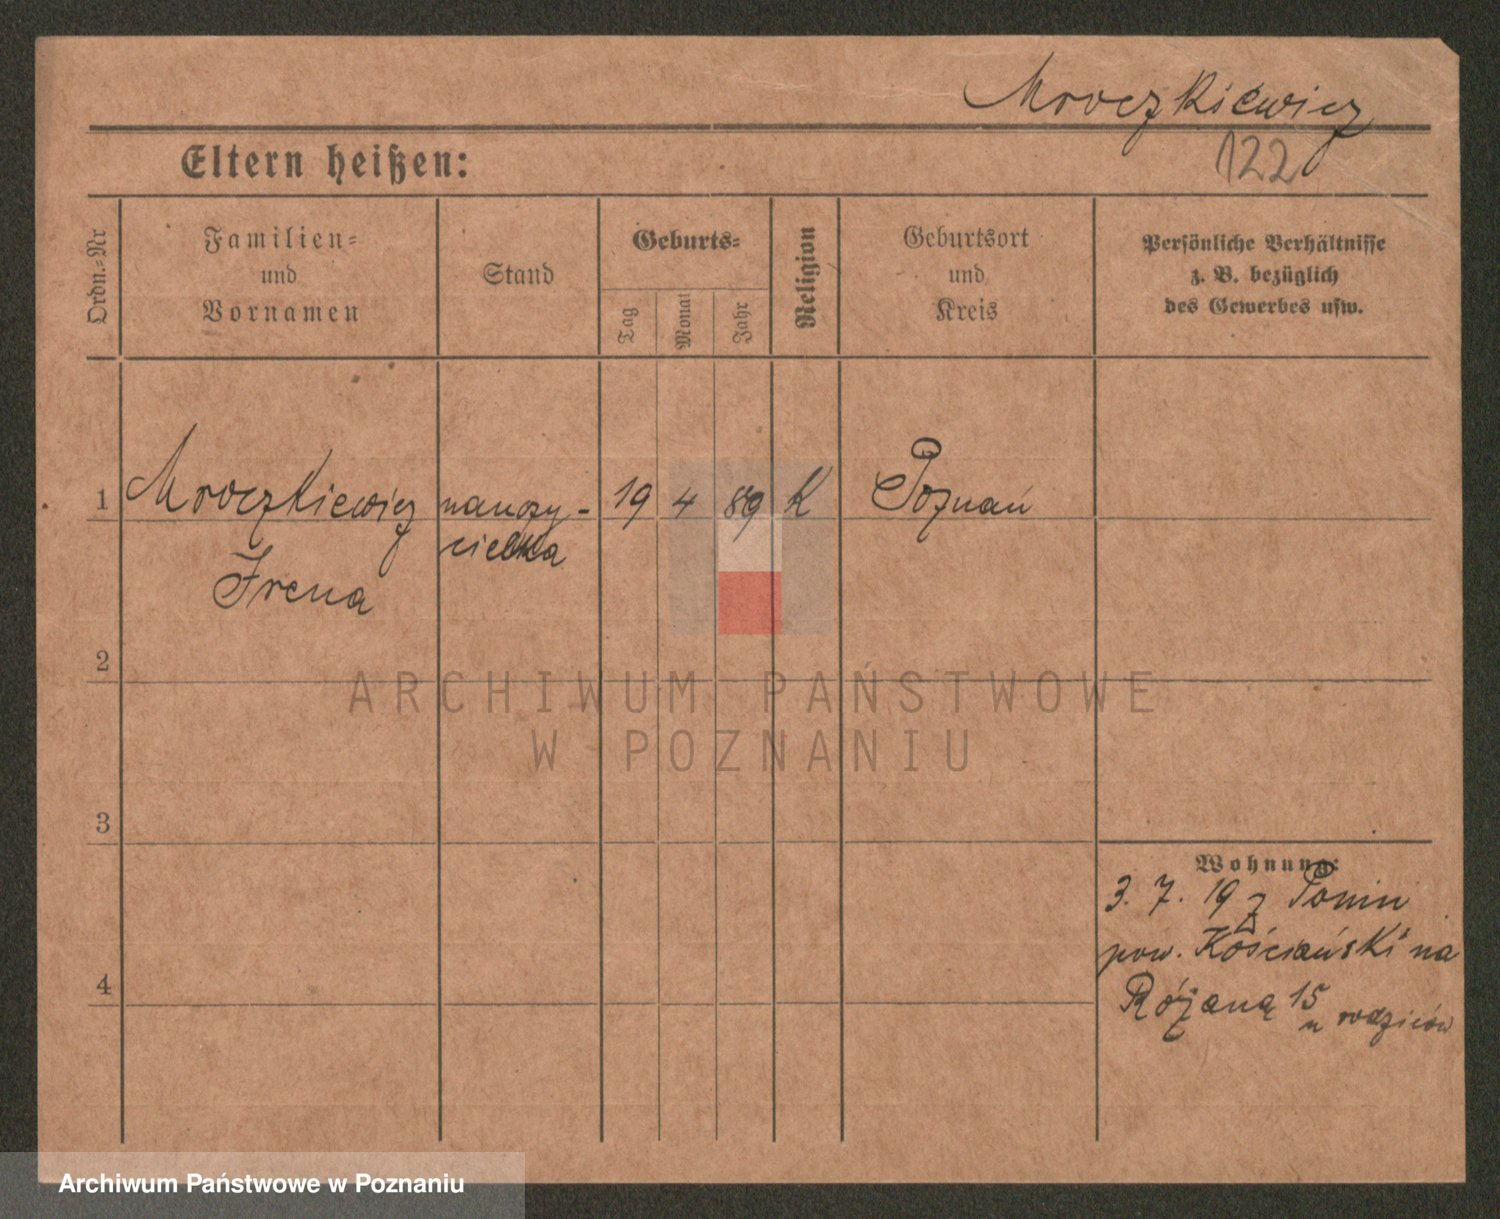 Mroczkiewicz
122
Eltern heißen:
Ordn.-Nr
Familien-
und
Vornamen
Stand
Geburts-
Tag
Monat
Jahr
Religion
Geburtsort
und
Kreis
Persönliche Verhältnisse
z. B. bezüglich
des Gewerbes usw.
1 Mroczkiewicz nauczy- 19 4 89 K Poznań
cielka
Irena
2
ARCHIWUM PAŃSTWOWE
W POZNANIU
3
Wohnung:
3. 7. 19 z Ponin
pow. Kościański na
4
Różaną 15
u rodziców
Archiwum Państwowe w Poznaniu